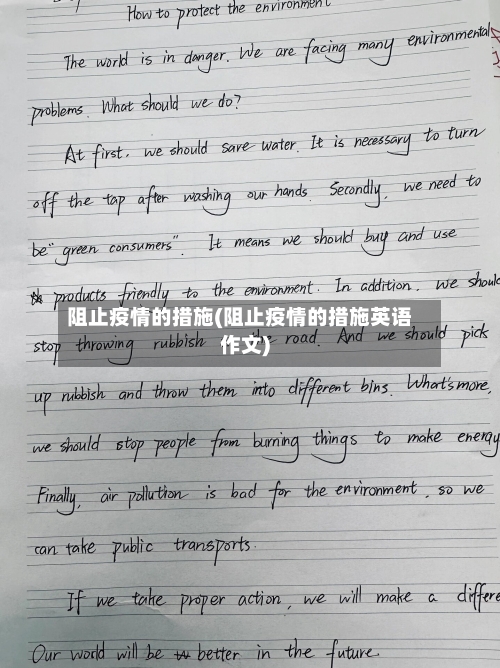 How to protect the environment
The world is in danger. We are facing many environmental
problems. What should we do?
At first, we should save water. It is necessary to turn
off the tap after washing our hands. Secondly, we need to
be "green consumers". It means we should buy and use
products friendly to the environment. In addition, we should
阻止疫情的措施(阻止疫情的措施英语
作文)
stop throwing rubbish the road. And we should pick
up rubbish and throw them into different bins. What's more,
we should stop people from burning things to make energy
Finally, air pollution is bad for the environment, so we
can take public transports.
If we take proper action, we will make a differe
Our world will be better in the future.